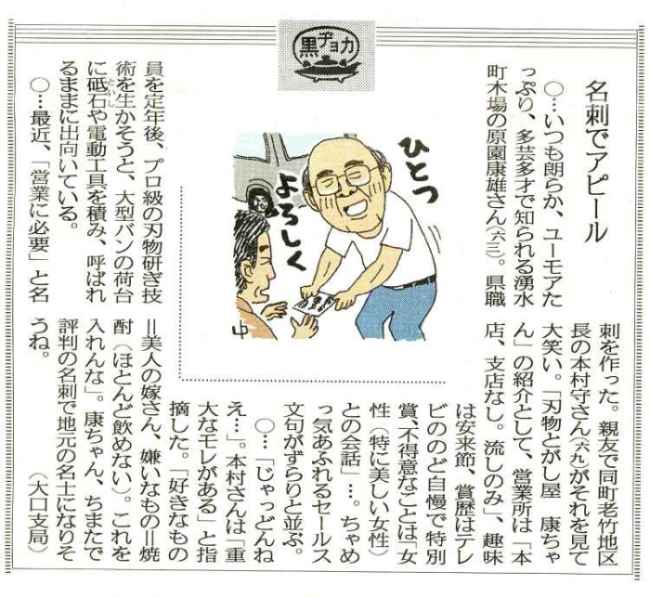 黒ヂョカ
名刺でアピール
○…いつも朗らか、ユーモアた
っぷり、多芸多才で知られる湧水
町木場の原園康雄さん(六三)。県職
員を定年後、プロ級の刃物研ぎ技
術を生かそうと、大型バンの荷台
に砥石や電動工具を積み、呼ばれ
るままに出向いている。
○…最近、「営業に必要」と名
刺を作った。親友で同町老竹地区
長の本村守さん(六九)がそれを見て
大笑い。「刃物とがし屋 康ちゃ
ん」の紹介として、営業所は「本
店、支店なし。流しのみ」、趣味
は安来節、賞歴はテレ
ビののど自慢で特別
賞、不得意なことは「女
性(特に美しい女性)
との会話」…。ちゃめ
っ気あふれるセールス
文句がずらりと並ぶ。
○…「じゃっどんね
え…」。本村さんは「重
大なモレがある」と指
摘した。「好きなもの
=美人の嫁さん、嫌いなもの=焼
酎(ほとんど飲めない)。これを
入れんな」。康ちゃん、ちまたで
評判の名刺で地元の名士になりそ
うね。
(大口支局)
ひとつ
よろしく
中